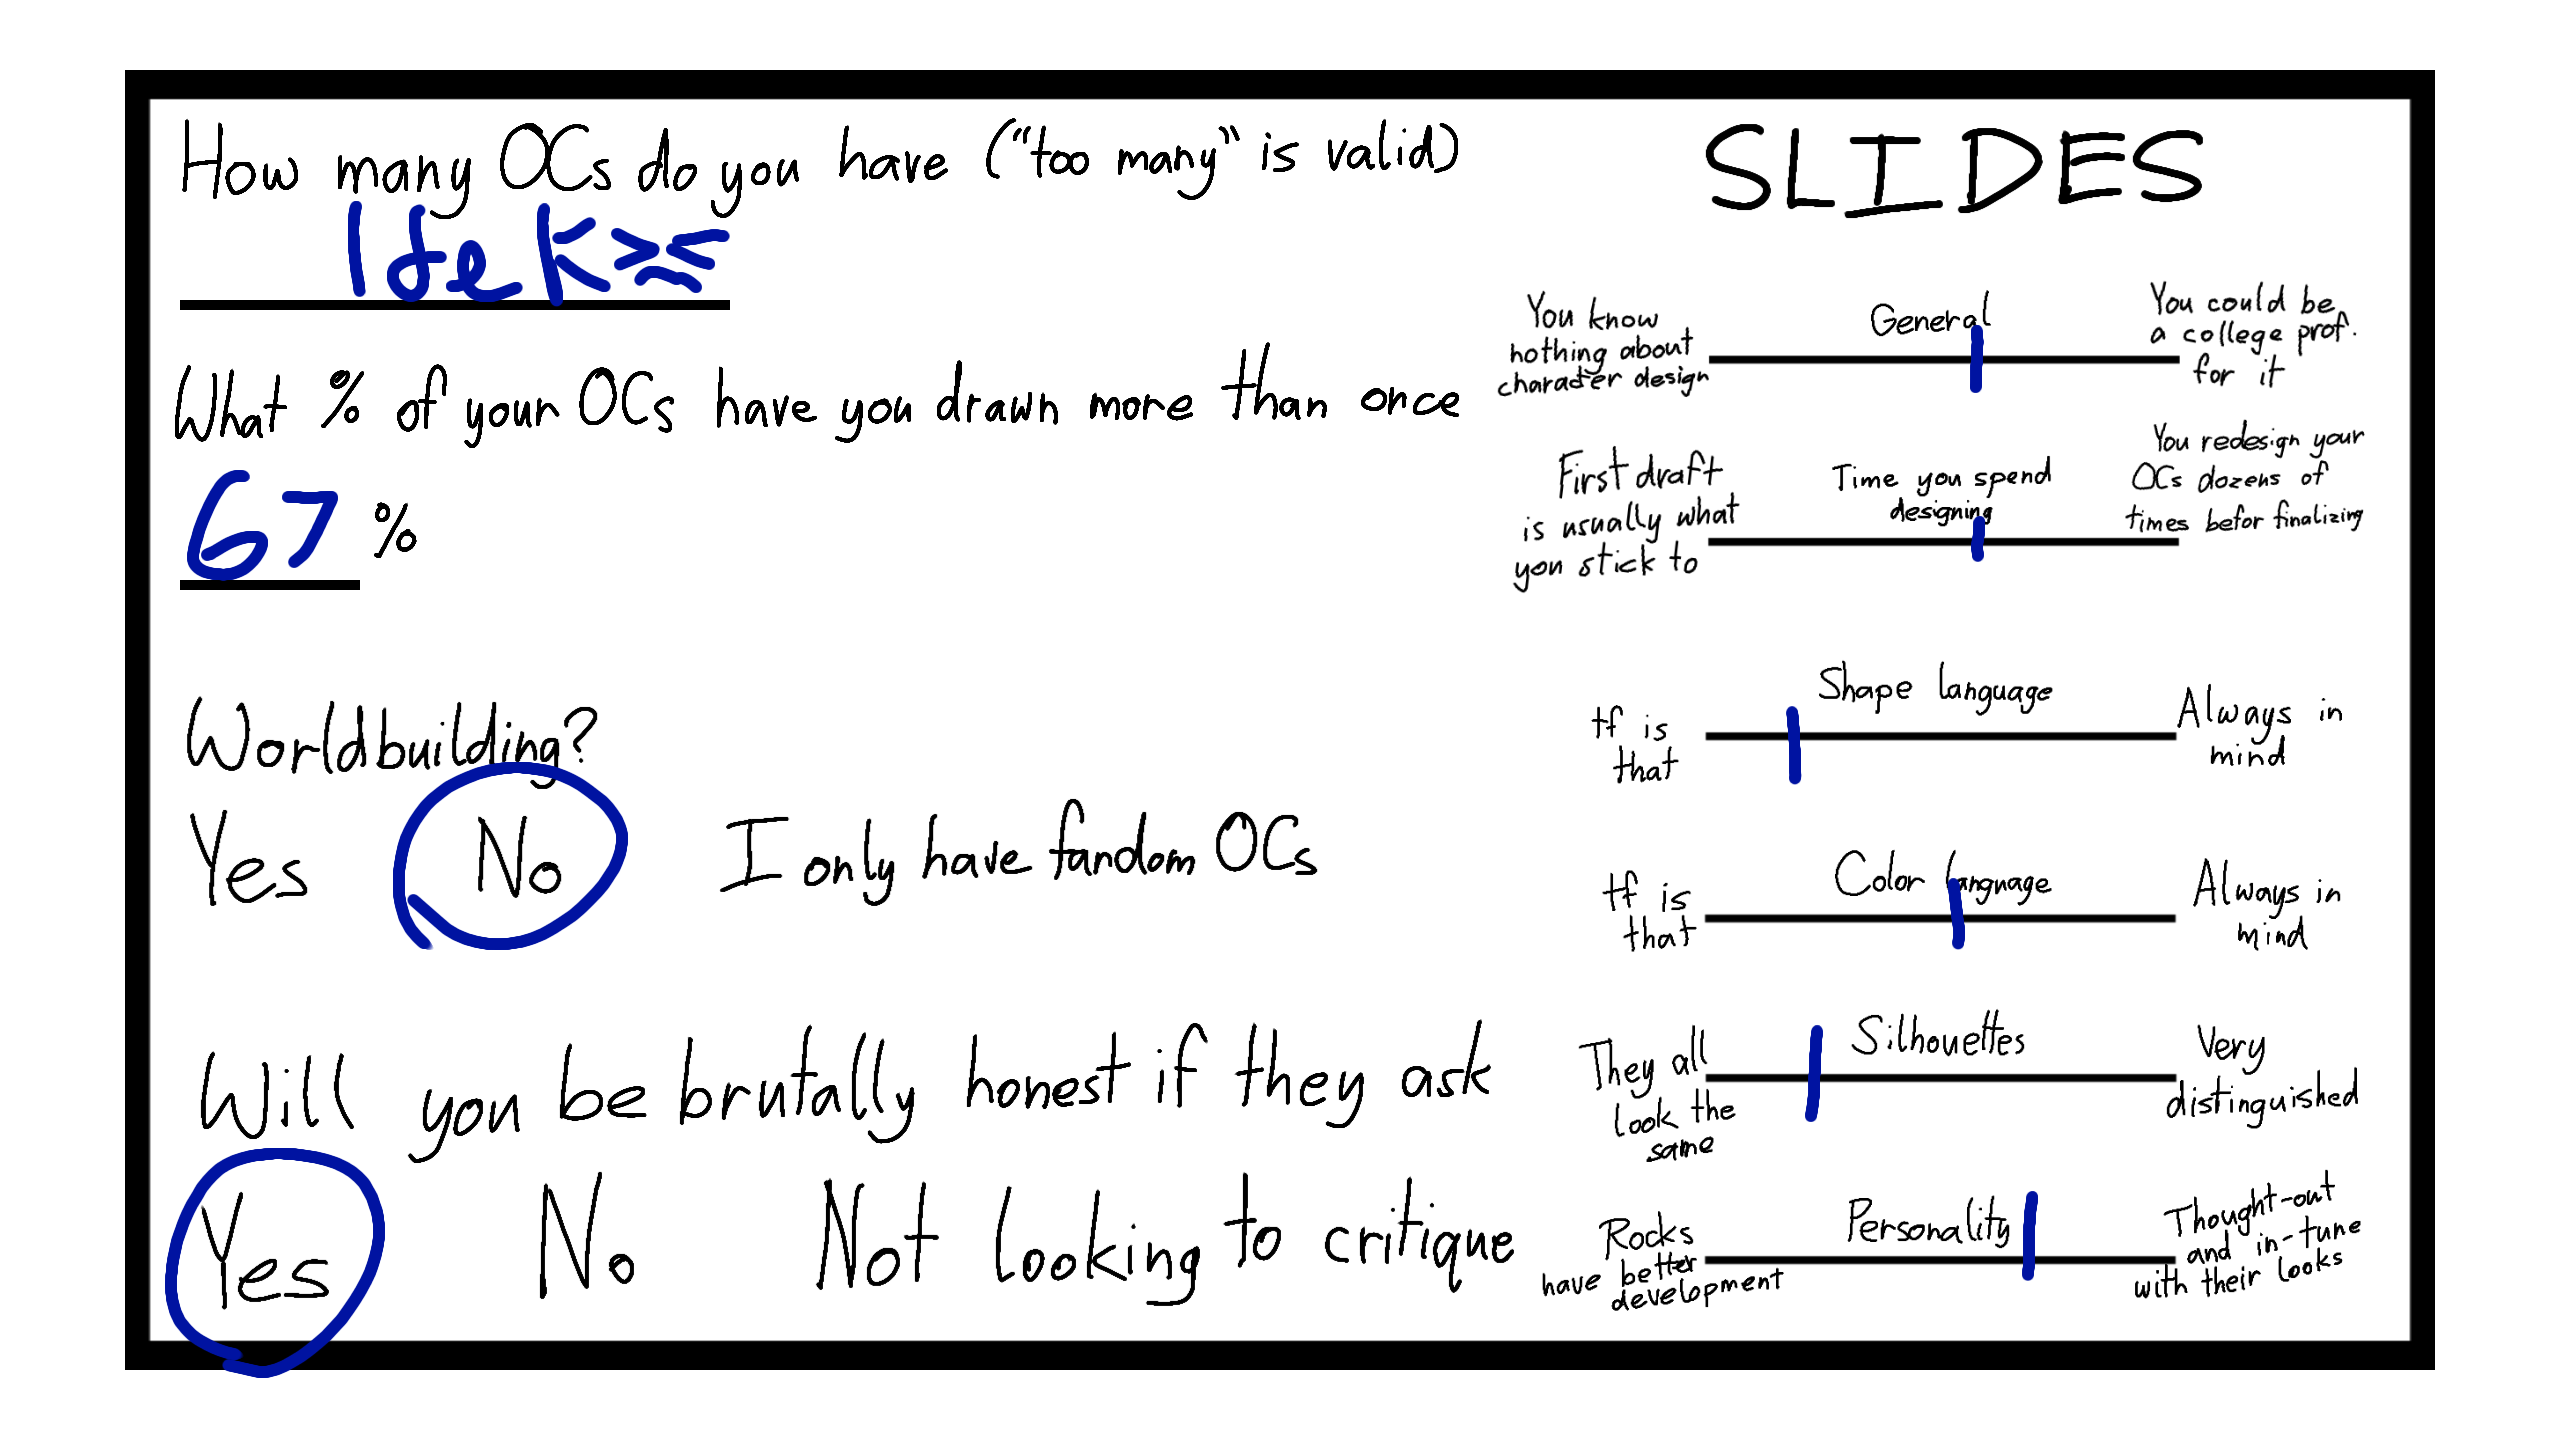 How many OCs do you have ("too many" is valid)
Idek
What % of your OCs have you drawn more than once
67 %
Worldbuilding?
Yes No I only have fandom OCs
Will you be brutally honest if they ask
Yes No Not looking to critique
SLIDES
You know
nothing about
character design
General
You could be
a college prof.
for it
First draft
is usually what
you stick to
Time you spend
designing
You redesign your
OCs dozens of
times befor finalizing
tf is
that
Shape language
Always in
mind
tf is
that
Color language
Always in
mind
They all
look the
same
Silhouettes
Very
distinguished
Rocks
have better
development
Personality
Thought-out
and in-tune
with their looks